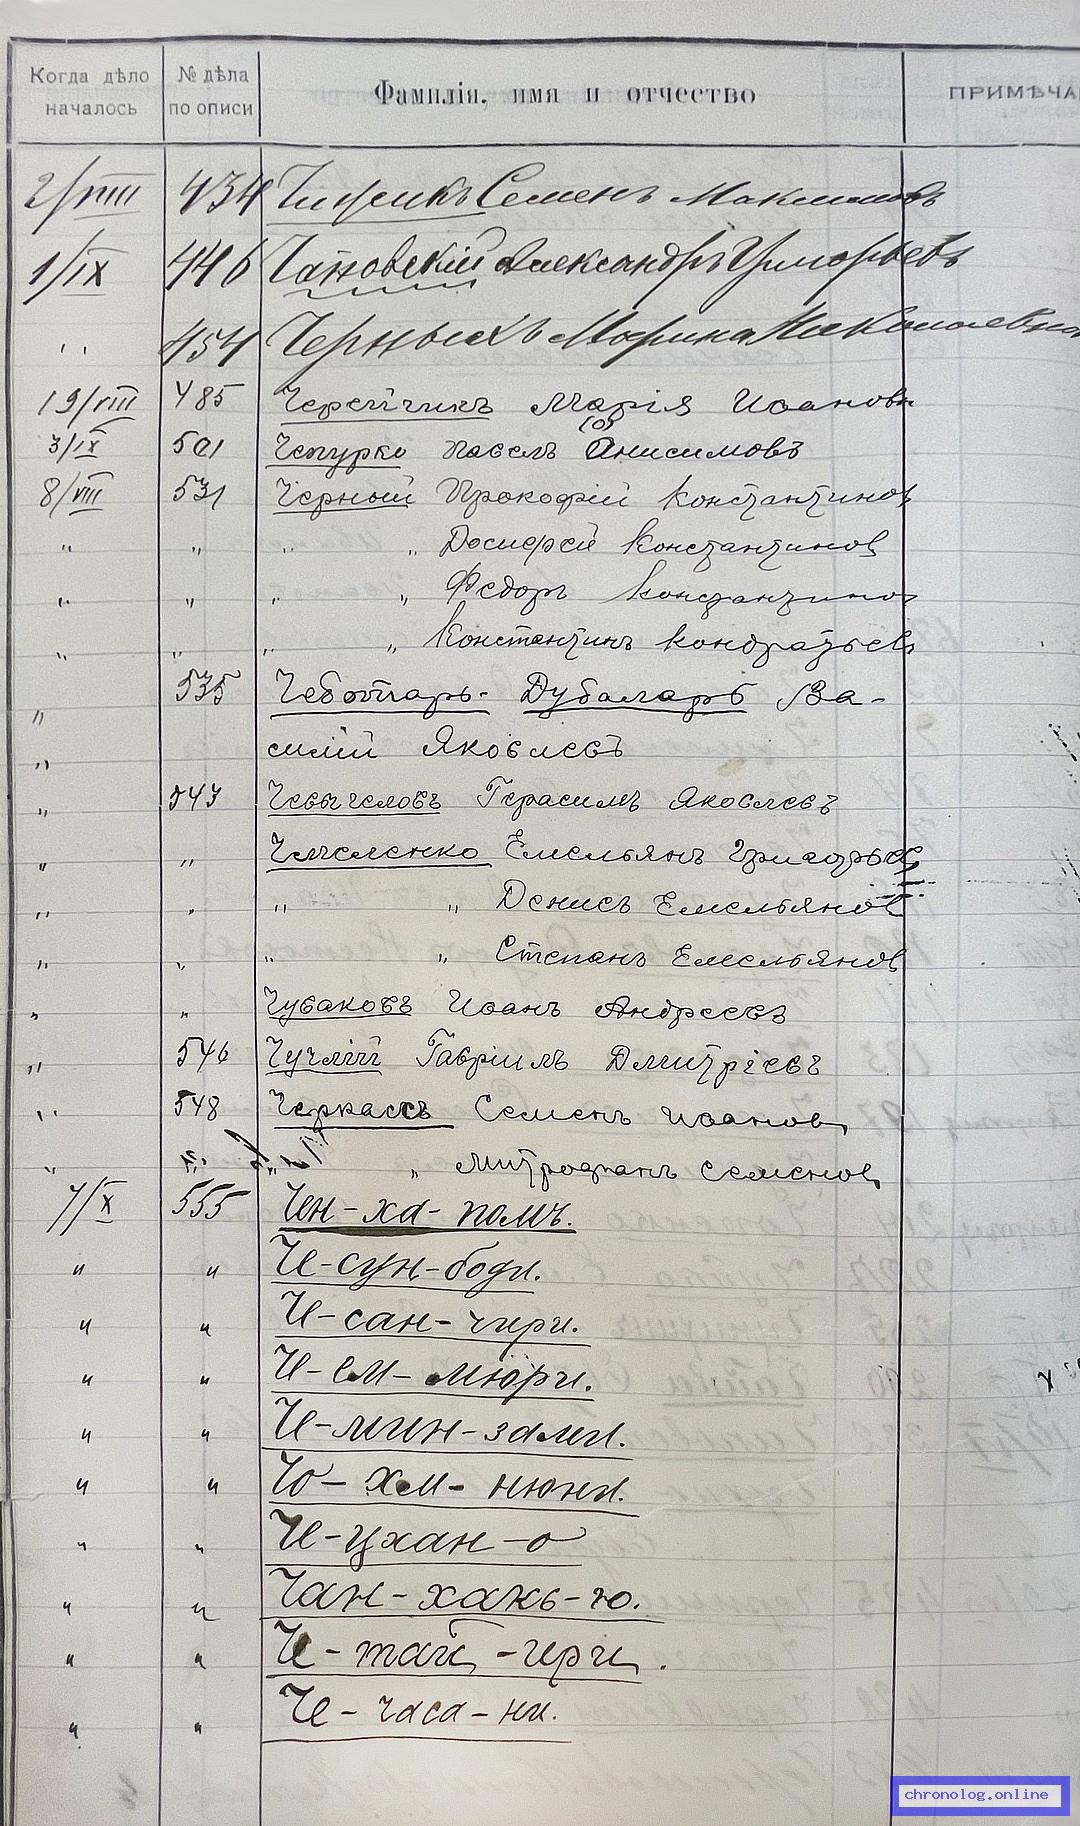 Когда дѣло началось № дѣла по описи Фамилія, имя и отчество ПРИМѢЧА
2/VIII 434 Чижикъ Семенъ Максимовъ
1/IX 446 Александръ Григорьевъ
" 454 Черныхъ Марина Николаевна
19/VIII 485 Черейчикъ Марія Иоановн
3/IX 501 Чепурко Павелъ (О)Анисимовъ
8/VIII 531 Черный Прокофій Константинов
" " " " Досифей Константинов
" " " " Федоръ Константинов
" " " " Константинъ Кондратьев
" 535 Чеботарь-Дубаларь Ва-
" силій Яковлевъ
" 543 Чевычеловъ Герасимъ Яковлевъ
" " Чмеленко Емельянъ Григорьев
" " " " Денисъ Емельянов
" " " " Степанъ Емельянов
" " Чуваковъ Иоанъ Андреевъ
" 546 Чучлій Гавріилъ Дмитріевъ
" 548 Черкасъ Семенъ Иоанов
" " " " Митрофанъ Семенов
7/X 555 Чен-ха-помъ.
" " Че-сун-боди.
" " Че-сан-чири.
" " Че-ем-мюри.
" " Че-мин-зами.
" " Чо-хем-нюни.
" " Че-цхан-о
" " Чан-хакь-ю.
" " Че-тай-ири.
" " Че-часа-ни.
chronolog.online